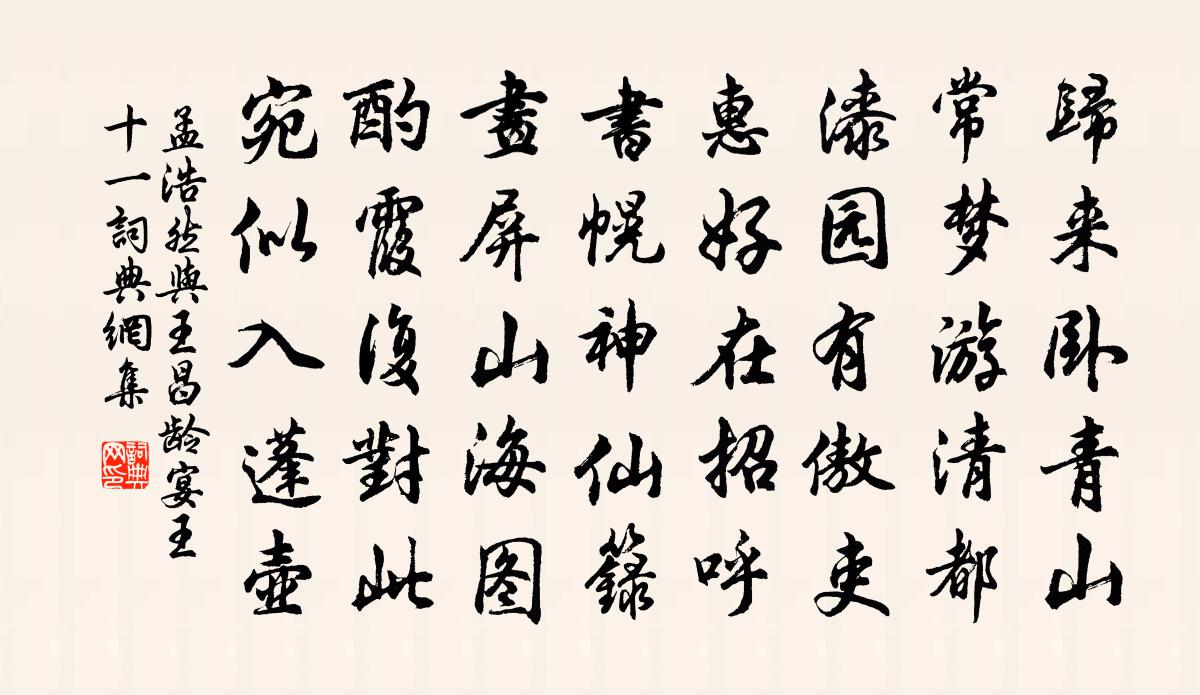 歸来卧青山
常梦游清都
漆园有傲吏
惠好在招呼
書幌神仙籙
畫屏山海图
酌霞復對此
宛似入蓬壺
孟浩然與王昌龄宴王
十一詞典網集
詞典
网印